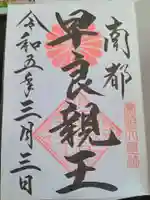 南都
早良親王
令和五年三月三日